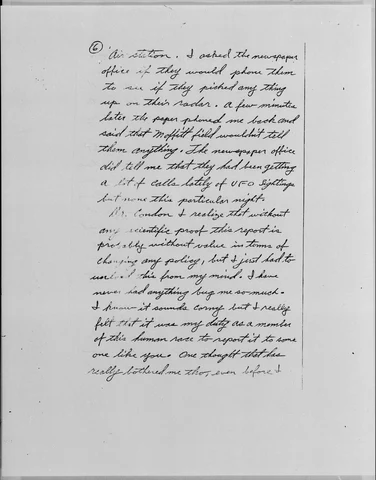 6
Air station. I asked the newspaper
office if they would phone them
to see if they picked any thing
up on their radar. A few minutes
later the paper phoned me back and
said that Moffitt field wouldn't tell
them anything. The newspaper office
did tell me that they had been getting
a lot of calls lately of UFO sightings
but none this particular night.
Dr. Condon I realize that without
any scientific proof this report is
probably without value in terms of
changing any policy, but I just had to
unload this from my mind. I have
never had anything bug me so much.
I know it sounds corny but I really
felt that it was my duty as a member
of this human race to report it to some
one like you. One thought that has
really bothered me tho, even before I